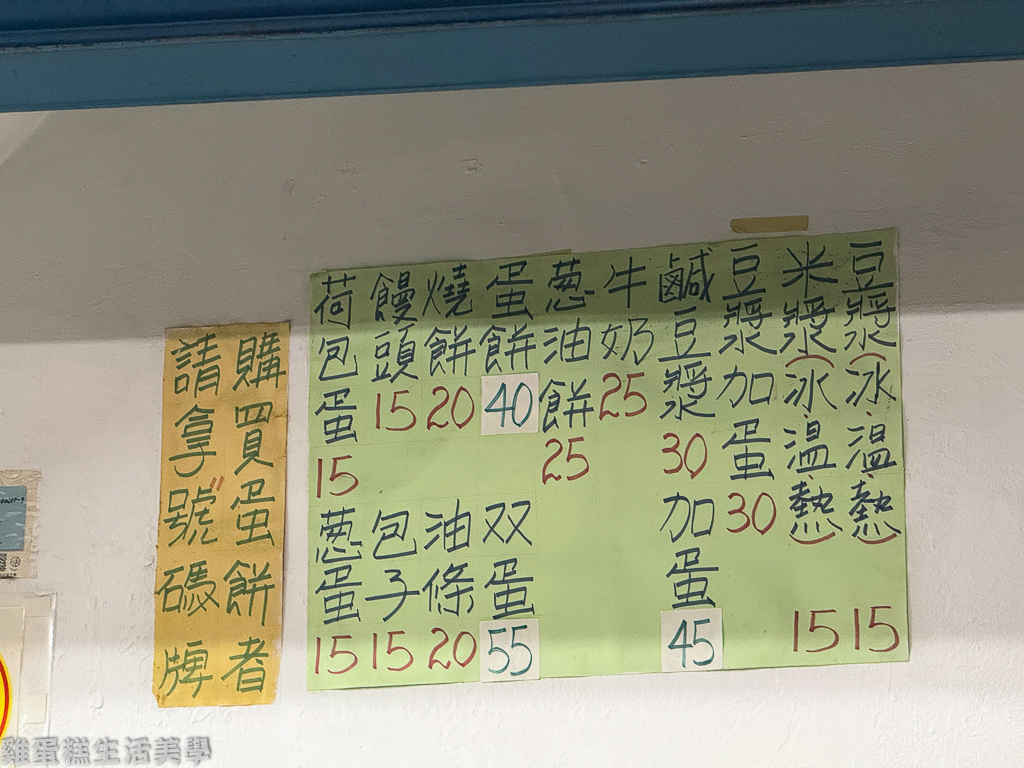 豆漿(冰.溫.熱) 15
米漿(冰.溫.熱) 15
豆漿加蛋 30
鹹豆漿 30
加蛋 45
牛奶 25
葱油餅 25
蛋餅 40
双蛋 55
燒餅 20
油條 20
饅頭 15
包子 15
荷包蛋 15
葱蛋 15
購買蛋餅者
請拿"號碼牌
雞蛋糕生活美學